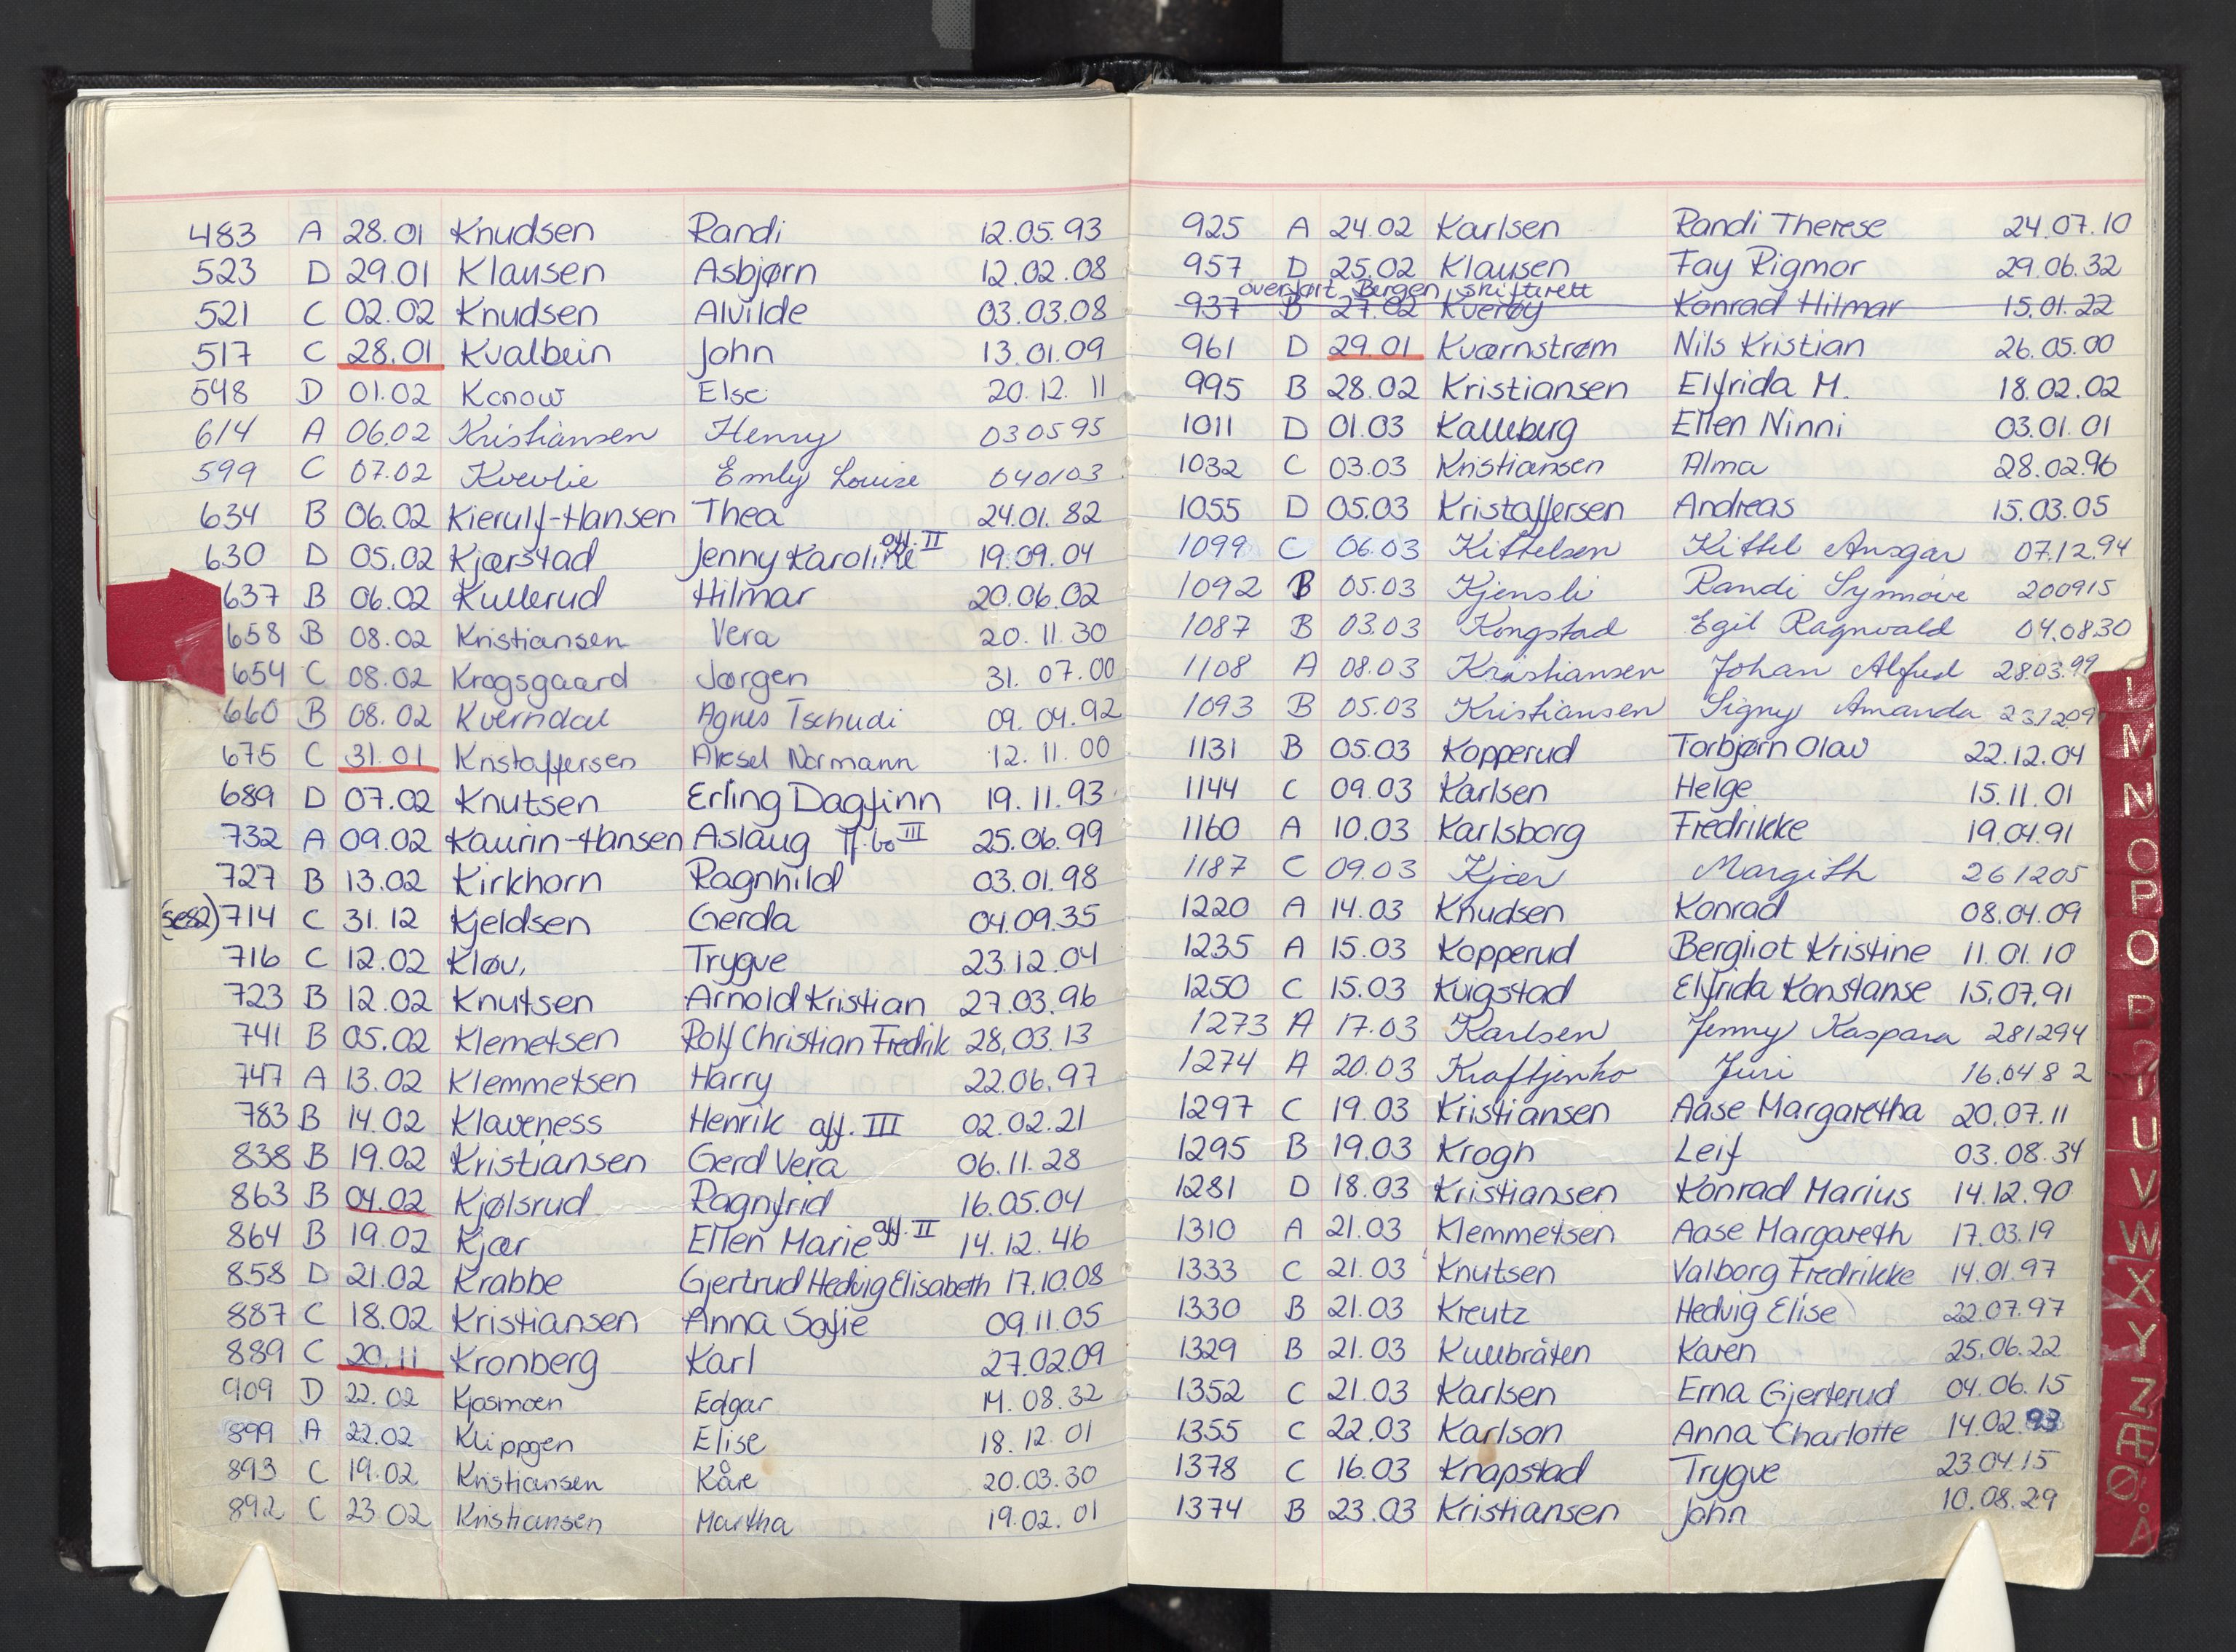 483 A 28.01 Knudsen Randi 12.05.93
523 D 29.01 Klausen Asbjørn 12.02.08
521 C 02.02 Knudsen Alvilde 03.03.08
517 C 28.01 Kvalbein John 13.01.09
548 D 01.02 Konow Else 20.12.11
614 A 06.02 Kristiansen Henry 030595
599 C 07.02 Kvevlie Emly Louise 040103
634 B 06.02 Kierulf-Hansen Thea 24.01.82
630 D 05.02 Kjærstad Jenny Karoline off. II 19.09.04
637 B 06.02 Kullerud Hilmar 20.06.02
658 B 08.02 Kristiansen Vera 20.11.30
654 C 08.02 Krogsgaard Jørgen 31.07.00
660 B 08.02 Kverndal Agnes Tschudi 09.04.92
675 C 31.01 Kristoffersen Aksel Normann 12.11.00
689 D 07.02 Knutsen Erling Dagfinn 19.11.93
732 A 09.02 Kaurin-Hansen Aslaug III 25.06.99
727 B 13.02 Kirkhorn Ragnhild 03.01.98
714 C 31.12 Kjeldsen Gerda 04.09.35
716 C 12.02 Kløv, Trygve 23.12.04
723 B 12.02 Knutsen Arnold Kristian 27.03.96
741 B 05.02 Klemetsen Rolf Christian Fredrik 28.03.13
747 A 13.02 Klemmetsen Harry 22.06.97
783 B 14.02 Klaveness Henrik off. III 02.02.21
838 B 19.02 Kristiansen Gerd Vera 06.11.28
863 B 04.02 Kjølsrud Ragnfrid 16.05.04
864 B 19.02 Kjær Ellen Marie off. II 14.12.46
858 D 21.02 Krabbe Gjertrud Hedvig Elisabeth 17.10.08
887 C 18.02 Kristiansen Anna Sofie 09.11.05
889 C 20.11 Kronberg Karl 27.02.09
909 D 22.02 Kjosmoen Edgar 14.08.32
899 A 22.02 Klippgen Elise 18.12.01
893 C 19.02 Kristiansen Kåre 20.03.30
892 C 23.02 Kristiansen Martha 19.02.01
925 A 24.02 Karlsen Randi Therese 24.07.10
957 D 25.02 Klausen Fay Rigmor 29.06.32
overført Bergen skifterett
937 B 27.02 Kverøy Konrad Hilmar 15.01.22
961 D 29.01 Kværnstrøm Nils Kristian 26.05.00
995 B 28.02 Kristiansen Elfrida M. 18.02.02
1011 D 01.03 Kalleberg Ellen Ninni 03.01.01
1032 C 03.03 Kristiansen Alma 28.02.96
1055 D 05.03 Kristoffersen Andreas 15.03.05
1099 C 06.03 Kittelsen Kittel Ansgar 07.12.94
1092 B 05.03 Kjensli Randi Synnøve 200915
1087 B 03.03 Kongstad Egil Ragnvald 04.0830
1108 A 08.03 Kristiansen Johan Alfred 28.03.99
1093 B 05.03 Kristiansen Signy Amanda 231209
1131 B 05.03 Kopperud Torbjørn Olav 22.12.04
1144 C 09.03 Karlsen Helge 15.11.01
1160 A 10.03 Karlsborg Fredrikke 19.04.91
1187 C 09.03 Kjær Margith 261205
1220 A 14.03 Knudsen Konrad 08.04.09
1235 A 15.03 Kopperud Bergliot Kristine 11.01.10
1250 C 15.03 Kvigstad Elfrida Konstanse 15.07.91
1273 A 17.03 Karlsen Jenny Kaspara 281294
1274 A 20.03 Kraftjenko Juri 16.0482
1297 C 19.03 Kristiansen Aase Margaretha 20.07.11
1295 B 19.03 Krogh Leif 03.08.34
1281 D 18.03 Kristiansen Konrad Marius 14.12.90
1310 A 21.03 Klemmetsen Aase Margareth 17.03.19
1333 C 21.03 Knutsen Valborg Fredrikke 14.01.97
1330 B 21.03 Kreutz Hedvig Elise 22.07.97
1329 B 21.03 Kullbråten Karen 25.06.22
1352 C 21.03 Karlsen Erna Gjerterud 04.06.15
1355 C 22.03 Karlson Anna Charlotte 14.02.93
1378 C 16.03 Knapstad Trygve 23.04.15
1374 B 23.03 Kristiansen John 10.08.29
M
N
O
P
O
U
V
W
X
Y
Z
Æ
Ø
Å